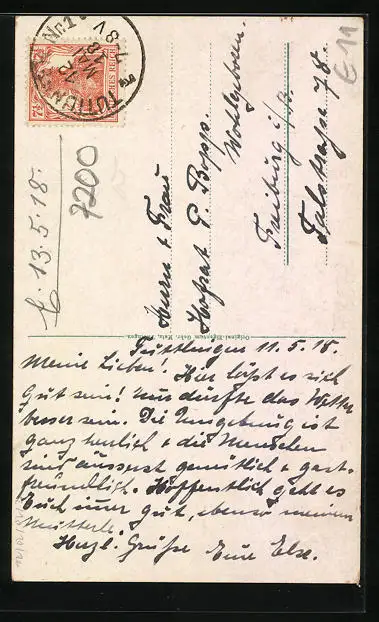 TUTTLINGEN Nr. 1
7-8 V
7½
DEUTSCHES REICH
E 11
7200
E. 13.5.18.
Herrn & Frau
Hofrat P. Bopp.
Wohlgeboren.
Freiburg i/B.
Talstrasse 78.
Original-Eigentum Gebr. Metz, Tübingen.
Tuttlingen 11.5.18.
Meine Lieben! Hier läßt es sich
gut sein! nur dürfte das Wetter
besser sein. Die Umgebung ist
ganz herlich & die Menschen
sind äusserst gemütlich & gast-
freundlich. Hoffentlich geht es
Euch immer gut, ebenso meinem
Mutterle.
Herzl. Grüße Eure Else.